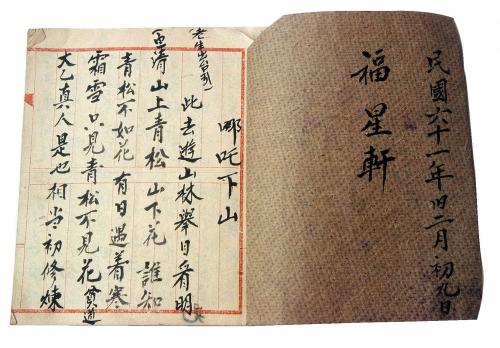 民國六十一年二月初九日
福星軒
哪吒下山
老生出台引
此去遊山林舉目看明
清山上青松山下花誰知
青松不如花有日遇着寒
霜雪只見青松不見花貧道
太乙真人是也相當初修煉